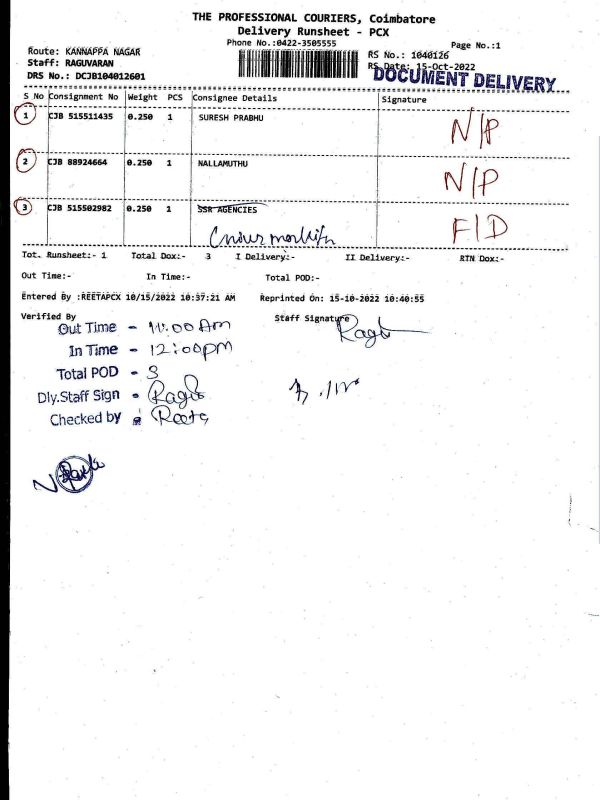 THE PROFESSIONAL COURIERS, Coimbatore
Delivery Runsheet - PCX
Phone No.:0422-3505555
Page No.:1
Route: KANNAPPA NAGAR
RS No.: 1040126
Staff: RAGUVARAN
RS Date: 15-Oct-2022
DRS No.: DCJB104012601
DOCUMENT DELIVERY
S No Consignment No Weight PCS Consignee Details Signature
1 CJB 515511435 0.250 1 SURESH PRABHU N/P
2 CJB 88924664 0.250 1 NALLAMUTHU N/P
3 CJB 515502982 0.250 1 SSR AGENCIES F/D
Tot. Runsheet:- 1 Total Dox:- 3 I Delivery:- II Delivery:- RTN Dox:-
Out Time:- In Time:- Total POD:-
Entered By :REETAPCX 10/15/2022 10:37:21 AM Reprinted On: 15-10-2022 10:40:55
Verified By Staff Signature
Out Time - 11:00 Am
In Time - 12:00pm
Total POD - 3
Dly.Staff Sign -
Checked by - Reeta